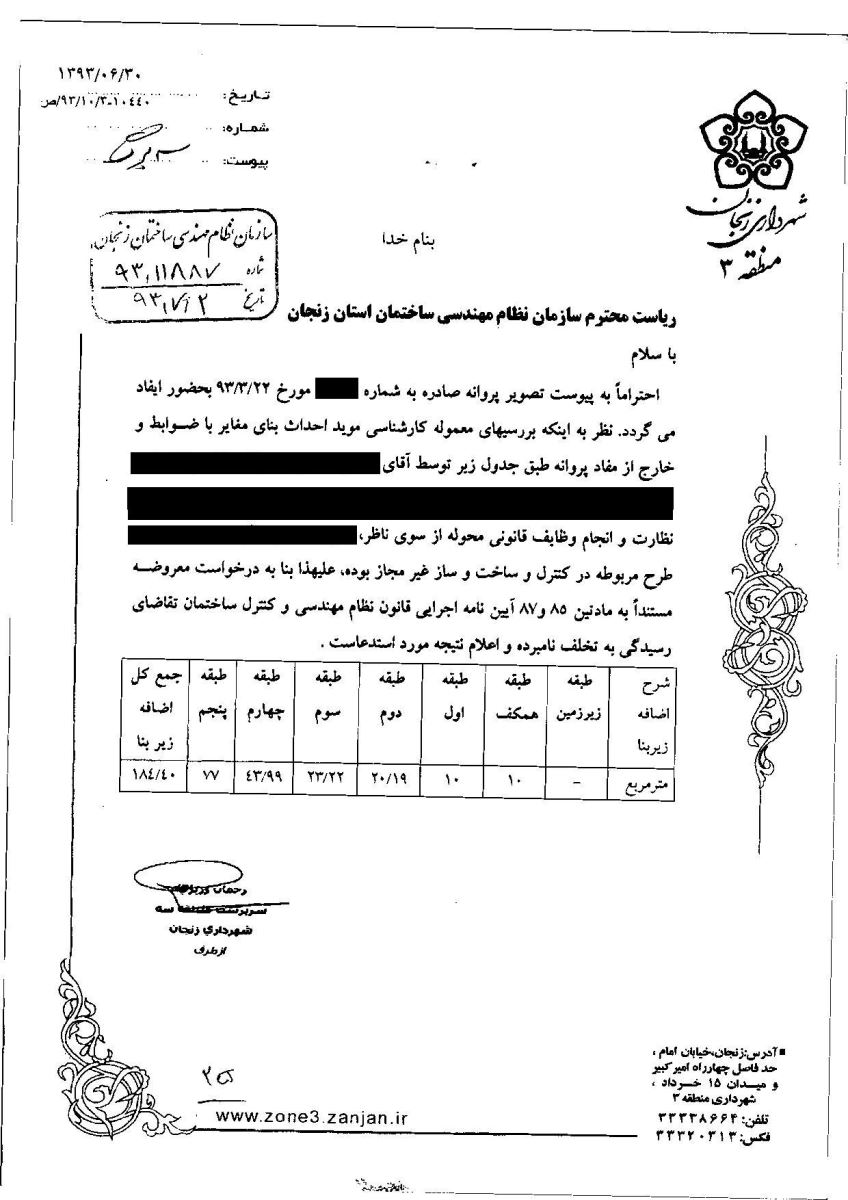 ۱۳۹۳/۰۶/۳۰
تاریخ:
۹۳/۱۰/۳-۱۰۴۴۰/ص
شماره:
پیوست: ۳ برگ
شهرداری زنجان
منطقه ۳
سازمان نظام مهندسی ساختمان زنجان
شماره ۹۳،۱۱۸۸۷
تاریخ ۹۳،۷،۲
بنام خدا
ریاست محترم سازمان نظام مهندسی ساختمان استان زنجان
با سلام
احتراماً به پیوست تصویر پروانه صادره به شماره مورخ ۹۳/۳/۲۲ بحضور ایفاد
می گردد. نظر به اینکه بررسیهای معموله کارشناسی موید احداث بنای مغایر با ضـوابط و
خارج از مفاد پروانه طبق جدول زیر توسط آقای
نظارت و انجام وظایف قانونی محوله از سوی ناظر،
طرح مربوطه در کنترل و ساخت و ساز غیر مجاز بوده، علیهذا بنا به درخواست معروضـه
مستنداً به مادتین ۸۵ و۸۷ آیین نامه اجرایی قانون نظام مهندسی و کنترل ساختمان تقاضای
رسیدگی به تخلف نامبرده و اعلام نتیجه مورد استدعاست .
شرح اضافه زیربنا
طبقه زیرزمین
طبقه همکف
طبقه اول
طبقه دوم
طبقه سوم
طبقه چهارم
طبقه پنجم
جمع کل اضافه زیر بنا
مترمربع
–
۱۰
۱۰
۲۰/۱۹
۲۳/۲۲
۴۳/۹۹
۷۷
۱۸۴/۴۰
رحمان
سرپرست منطقه سه
شهرداری زنجان
از طرف
۲۵
www.zone3.zanjan.ir
آدرس:زنجان،خیابان امام ،
حد فاصل چهارراه امیرکبیر
و میـدان ۱۵ خـرداد ،
شهرداری منطقه ۳
تلفن: ۳۳۳۳۸۶۶۴
فکس: ۳۳۳۲۰۳۱۳